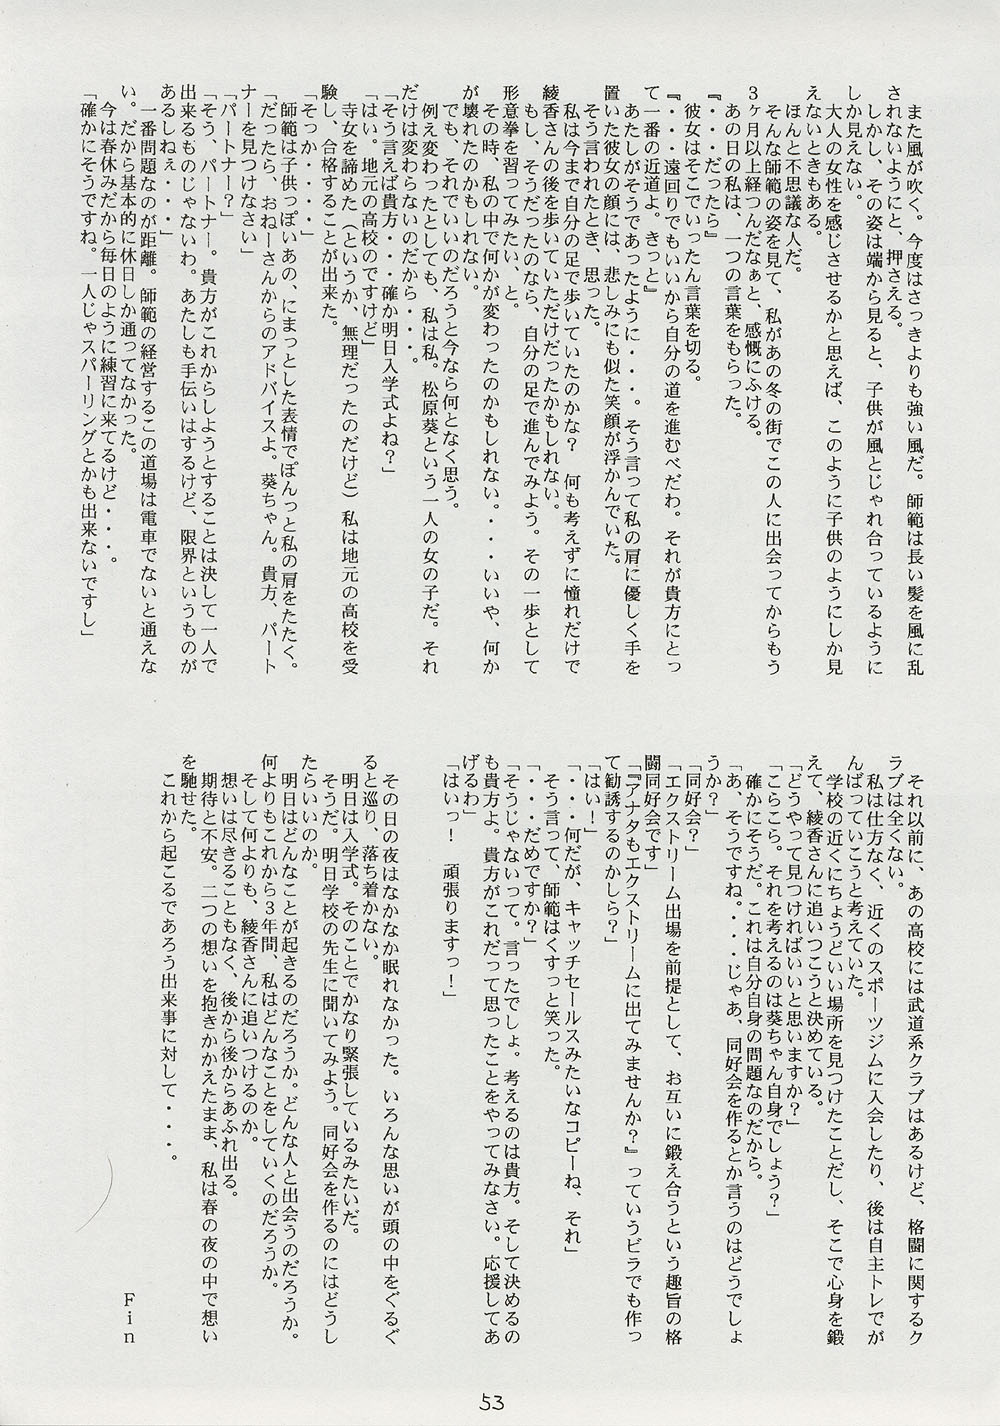 また風が吹く。今度はさっきよりも強い風だ。師範は長い髪を風に乱
されないようにと、押さえる。
しかし、その姿は端から見ると、子供が風とじゃれ合っているように
しか見えない。
大人の女性を感じさせるかと思えば、このように子供のようにしか見
えないときもある。
ほんと不思議な人だ。
そんな師範の姿を見て、私があの冬の街でこの人に出会ってからもう
3ヶ月以上経つんだなぁと、感慨にふける。
あの日の私は、一つの言葉をもらった。
『・・・だったら』
彼女はそこでいったん言葉を切る。
『・・・遠回りでもいいから自分の道を進むべだわ。それが貴方にとっ
て一番の近道よ。きっと』
あたしがそうであったように・・・。そう言って私の肩に優しく手を
置いた彼女の顔には、悲しみにも似た笑顔が浮かんでいた。
そう言われたとき、思った。
私は今まで自分の足で歩いていたのかな？　何も考えずに憧れだけで
綾香さんの後を歩いていただけだったかもしれない。
もし、そうだったのなら、自分の足で進んでみよう。その一歩として
形意拳を習ってみたい、と。
その時、私の中で何かが変わったのかもしれない。・・・いいや、何か
が壊れたのかもしれない。
でも、それでいいのだろうと今なら何となく思う。
例え変わったとしても、私は私。松原葵という一人の女の子だ。それ
だけは変わらないのだから・・・。
「そう言えば貴方・・・確か明日入学式よね？」
「はい。地元の高校のですけど」
寺女を諦めた（というか、無理だったのだけど）私は地元の高校を受
験し、合格することが出来た。
「そっか・・・」
師範は子供っぽいあの、にまっとした表情でぽんっと私の肩をたたく。
「だったら、おねーさんからのアドバイスよ。葵ちゃん。貴方、パート
ナーを見つけなさい」
「パートナー？」
「そう、パートナー。貴方がこれからしようとすることは決して一人で
出来るものじゃないわ。あたしも手伝いはするけど、限界というものが
あるしねぇ・・・」
一番問題なのが距離。師範の経営するこの道場は電車でないと通えな
い。だから基本的に休日しか通ってなかった。
今は春休みだから毎日のように練習に来てるけど・・・。
「確かにそうですね。一人じゃスパーリングとかも出来ないですし」
それ以前に、あの高校には武道系クラブはあるけど、格闘に関するク
ラブは全くない。
私は仕方なく、近くのスポーツジムに入会したり、後は自主トレでが
んばっていこうと考えていた。
学校の近くにちょうどいい場所を見つけたことだし、そこで心身を鍛
えて、綾香さんに追いつこうと決めている。
「どうやって見つければいいと思いますか？」
「こらこら。それを考えるのは葵ちゃん自身でしょう？」
確かにそうだ。これは自分自身の問題なのだから。
「あ、そうですね。・・・じゃあ、同好会を作るとか言うのはどうでしょ
うか？」
「同好会？」
「エクストリーム出場を前提として、お互いに鍛え合うという趣旨の格
闘同好会です」
「『アナタもエクストリームに出てみませんか？』っていうビラでも作っ
て勧誘するのかしら？」
「はい！」
「・・・何だが、キャッチセールスみたいなコピーね、それ」
そう言って、師範はくすっと笑った。
「・・・だめですか？」
「そうじゃないって。言ったでしょ。考えるのは貴方。そして決めるの
も貴方よ。貴方がこれだって思ったことをやってみなさい。応援してあ
げるわ」
「はいっ！　頑張りますっ！」
その日の夜はなかなか眠れなかった。いろんな思いが頭の中をぐるぐ
ると巡り、落ち着かない。
明日は入学式。そのことでかなり緊張しているみたいだ。
そうだ。明日学校の先生に聞いてみよう。同好会を作るのにはどうし
たらいいのか。
明日はどんなことが起きるのだろうか。どんな人と出会うのだろうか。
何よりもこれから3年間、私はどんなことをしていくのだろうか。
そして何よりも、綾香さんに追いつけるのか。
想いは尽きることもなく、後から後からあふれ出る。
期待と不安。二つの想いを抱きかかえたまま、私は春の夜の中で想い
を馳せた。
これから起こるであろう出来事に対して・・・。
Fin
53